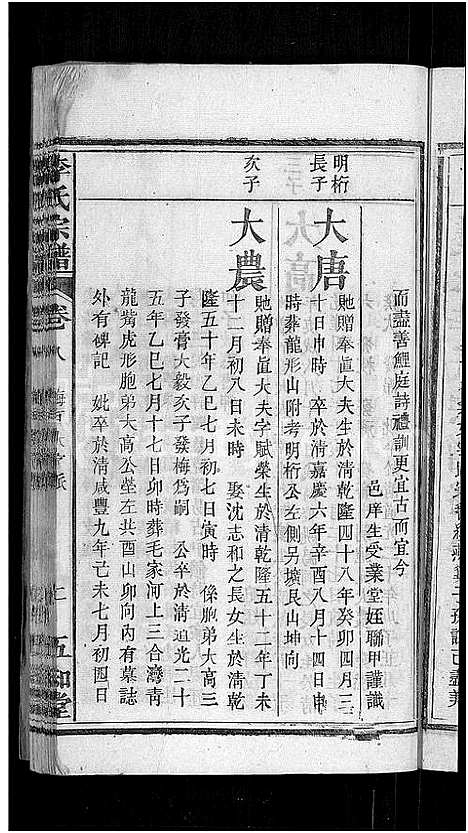 而盡善鯉庭詩禮訓更宜古而宜今
邑庠生受業堂姪聯甲謹識
明桁
長子
大唐
貤贈奉直大夫生於清乾隆四十八年癸卯四月二
十日申時 卒於清嘉慶六年辛酉八月十四日申
時葬龍形山附考明桁公左側另壙艮山坤向
次子
大農
貤贈奉直大夫字賦榮生於清乾隆五十二年丁未
十二月初八日未時 娶沈志和之長女生於清乾
隆五十年乙巳七月初七日寅時 係胞弟大高三
子發膏大毅次子發梅爲嗣 公卒於清道光二十
五年乙巳七月十七日卯時葬毛家河上三合灣青
龍嘴虎形胞弟大高公塋左共酉山卯向內有墓誌
外有碑記 妣卒於清咸豐九年己未七月初四日
李氏宗譜
卷八
五和堂